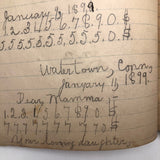 January 15 1899.
1.2.3.4.5.6.7.8.9.0.$
5.5.5.5.5.5.5.5.5.0.$
Watertown, Conn,
January 15 1899.
Dear Mamma
1.2.3.4.5.6.7.8.9.0.$
7.7.7.7.7.7.7.7.7.0.$
Your loving daughter,